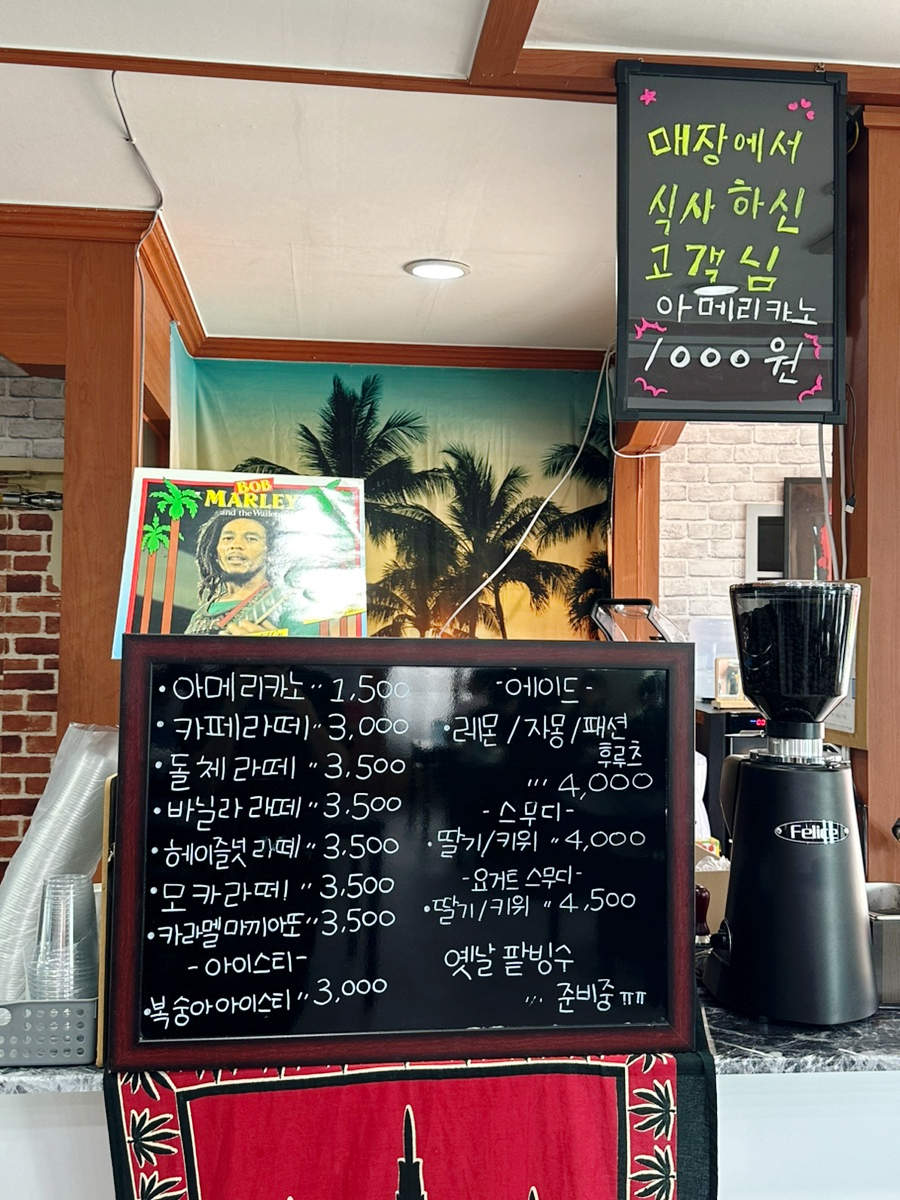 매장에서
식사 하신
고객님
아메리카노
1000원
BOB
MARLEY
and the Wailers
·아메리카노 〃 1,500
·카페라떼 〃 3,000
·돌체 라떼 〃 3,500
·바닐라 라떼 〃 3,500
·헤이즐넛 라떼 〃 3,500
·모카라떼! 〃 3,500
·카라멜마끼아또 〃 3,500
-아이스티-
·복숭아아이스티 〃 3,000
-에이드-
·레몬/자몽/패션
후루츠
〃 4,000
-스무디-
·딸기/키위 〃 4,000
-요거트 스무디-
·딸기/키위 〃 4,500
옛날 팥빙수
〃 준비중 ㅠㅠ
Felice